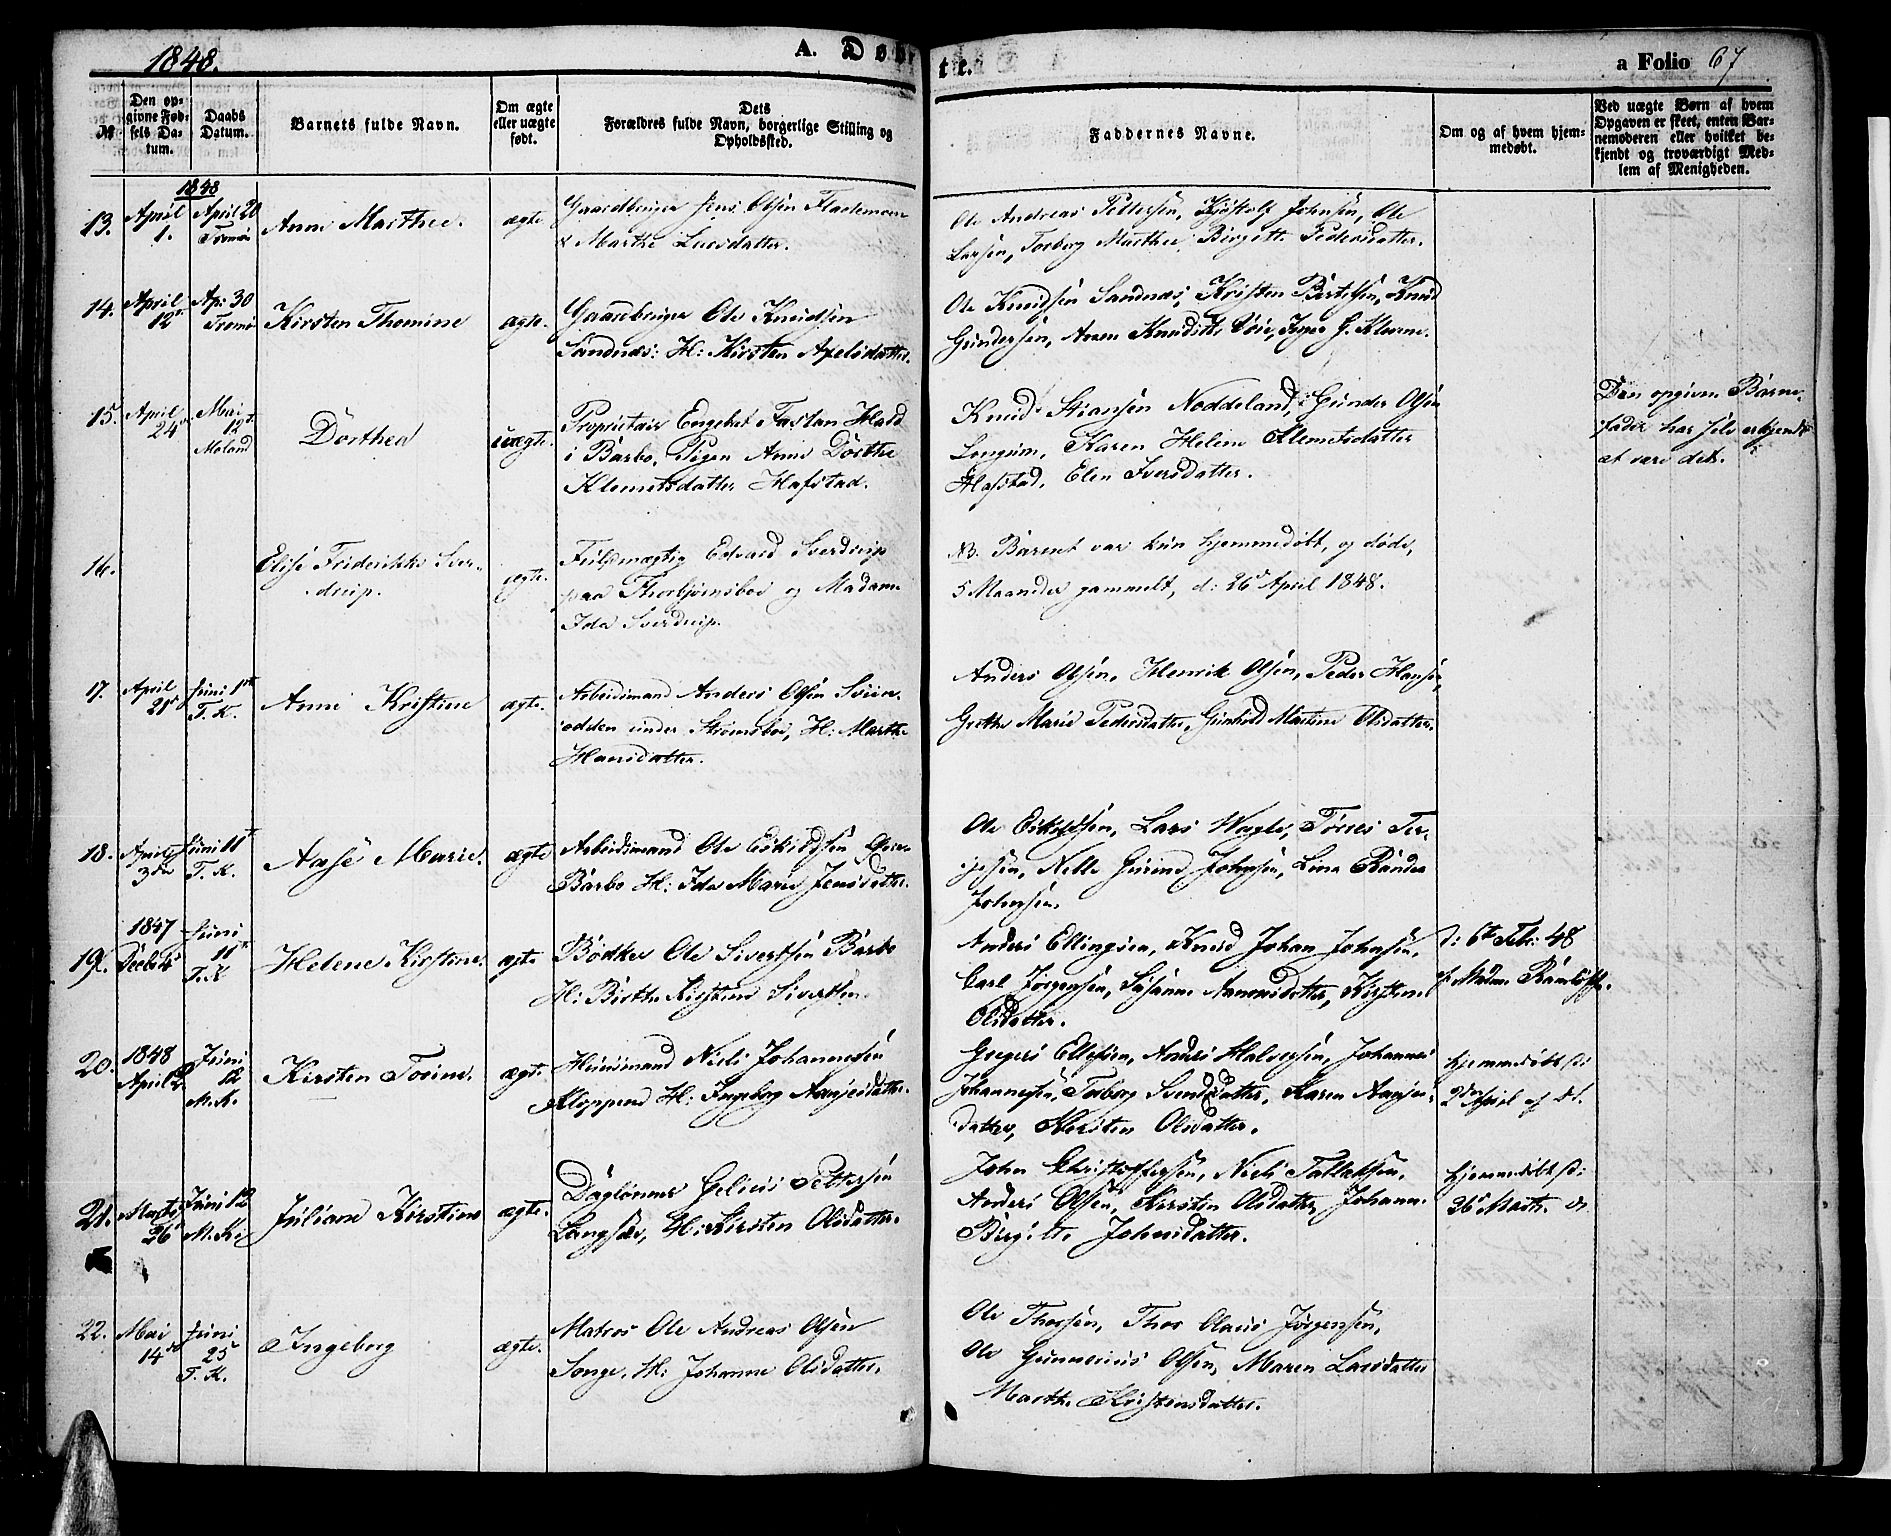 1848. A. Døbte. a Folio 67
№
Den op-
givne Fød-
sels Da-
tum.
Daabs
Datum.
Barnets fulde Navn.
Om ægte
eller uægte
født.
Dets
Forældres fulde Navn, borgerlige Stilling og
Opholdssted.
Faddernes Navne.
Om og af hvem hjem-
medøbt.
Ved uægte Børn af hvem
Opgaven er skeet, enten Bar-
nemoderen eller hvilket be-
kjendt og troværdigt Med-
lem af Menigheden.
1848
13. April 1. April 20 Tromø
Anne Marthee.
ægte
Gaardbruger Jens Olsen
& Marthe Larsdatter.
Ole Andreas Pettersen, Kjøstolf Johnsen, Ole
Larsen, Torborg Marthee, Birgitte Pedersdatter.
14. April 12te Ap: 30 Tromø
Kirsten Thomine
ægte.
Gaardbruger Ole Knudsen
Sandnæs: H: Kirsten Axelsdatter.
Ole Knudsen Sandnæs, Kristen Bertelsen, Knud
Gundersen, Anen Knudsdtr.
15. April 24de Mai 12te Moland
Dorthea
uægte.
Proprietair Engebret Hald
i Barbo, Pigen Anne Dorthe
Klemetsdatter Hafstad.
Knud Stiansen Noddeland, Gunder Olsen
Longum, Karen Helene Klemetsdatter
Hafstad, Elen Iversdatter.
Den opgivne Barne-
fader har selv erkjendt
at være det.
16.
Elise Frederikke Sver-
drup.
ægte.
Fuldmægtig Edvard Sverdrup
paa Thorbjørnsboe og Madame
Ida Sverdrup.
NB. Barnet var kun hjemmedøbt, og døde,
5 Maaneder gammelt, d: 26de April 1848.
17. April 21de Juni 1ste T. K.
Anne Kristine
ægte.
Arbeidsmand Anders Olsen Sviin-
odden under Strømsboe, H: Marthe
Hansdatter.
Anders Olsen, Henrik Olsen, Peder Hansen,
Grethe Marie Pedersdatter, Gunhild Martine Olsdatter.
18. April 3die Juni 11te T. K.
Aase Marie.
ægte
Arbeidsmand Ole Eskildsen
Barbo H: Ida Marie Jensdatter.
Ole Eskildsen, Lars Wagle, Tørres Ter-
jesen, Nelle Gurine Johnsen, Line
Johnsen.
19. 1847 Decbr 4de Juni 11te T. K
Helene Kirstine.
ægte
Bødker Ole Sivertsen Barbo
H: Birthe Kirstine Sivertsen.
Anders Ellingsen, Knud Johan Johnsen,
Carl Jørgensen, Susanne Aanonsdatter, Kirsten
Olsdatter.
d: 6te Feb: 48
af Madm.
20. 1848 April 2 Juni 12 M. K.
Kirsten Tosine.
ægte.
Huusmand Niels Johannesen
Kloppene H: Ingeborg Aanjesdatter.
Gregers Ellefsen, Anders Halvorsen, Johannes
Johannesen, Torborg Svendsdatter, Karen Aanjes-
datter, Kirsten Olsdatter.
hjemmedøbt d:
2den April af
21. Marts 26 Juni 12 M. K.
Juliane Kirstine
ægte.
Daglønner Pettersen
Langsæ, H: Kirsten Olsdatter.
John Christophersen, Niels Tallaksen,
Anders Olsen, Kirsten Olsdatter, Johanne
Birgitte Johnsdatter.
hjemmedøbt d:
26 Marts.
22. Mai 14de Juni 25 T. K.
Ingeborg
ægte.
Matros Ole Andreas Olsen
Songe. H: Johanne Olsdatter.
Ole Thorsen, Thor Olaus Jørgensen,
Ole Gunnerius Olsen, Maren Larsdatter
Marthe Kristensdatter.